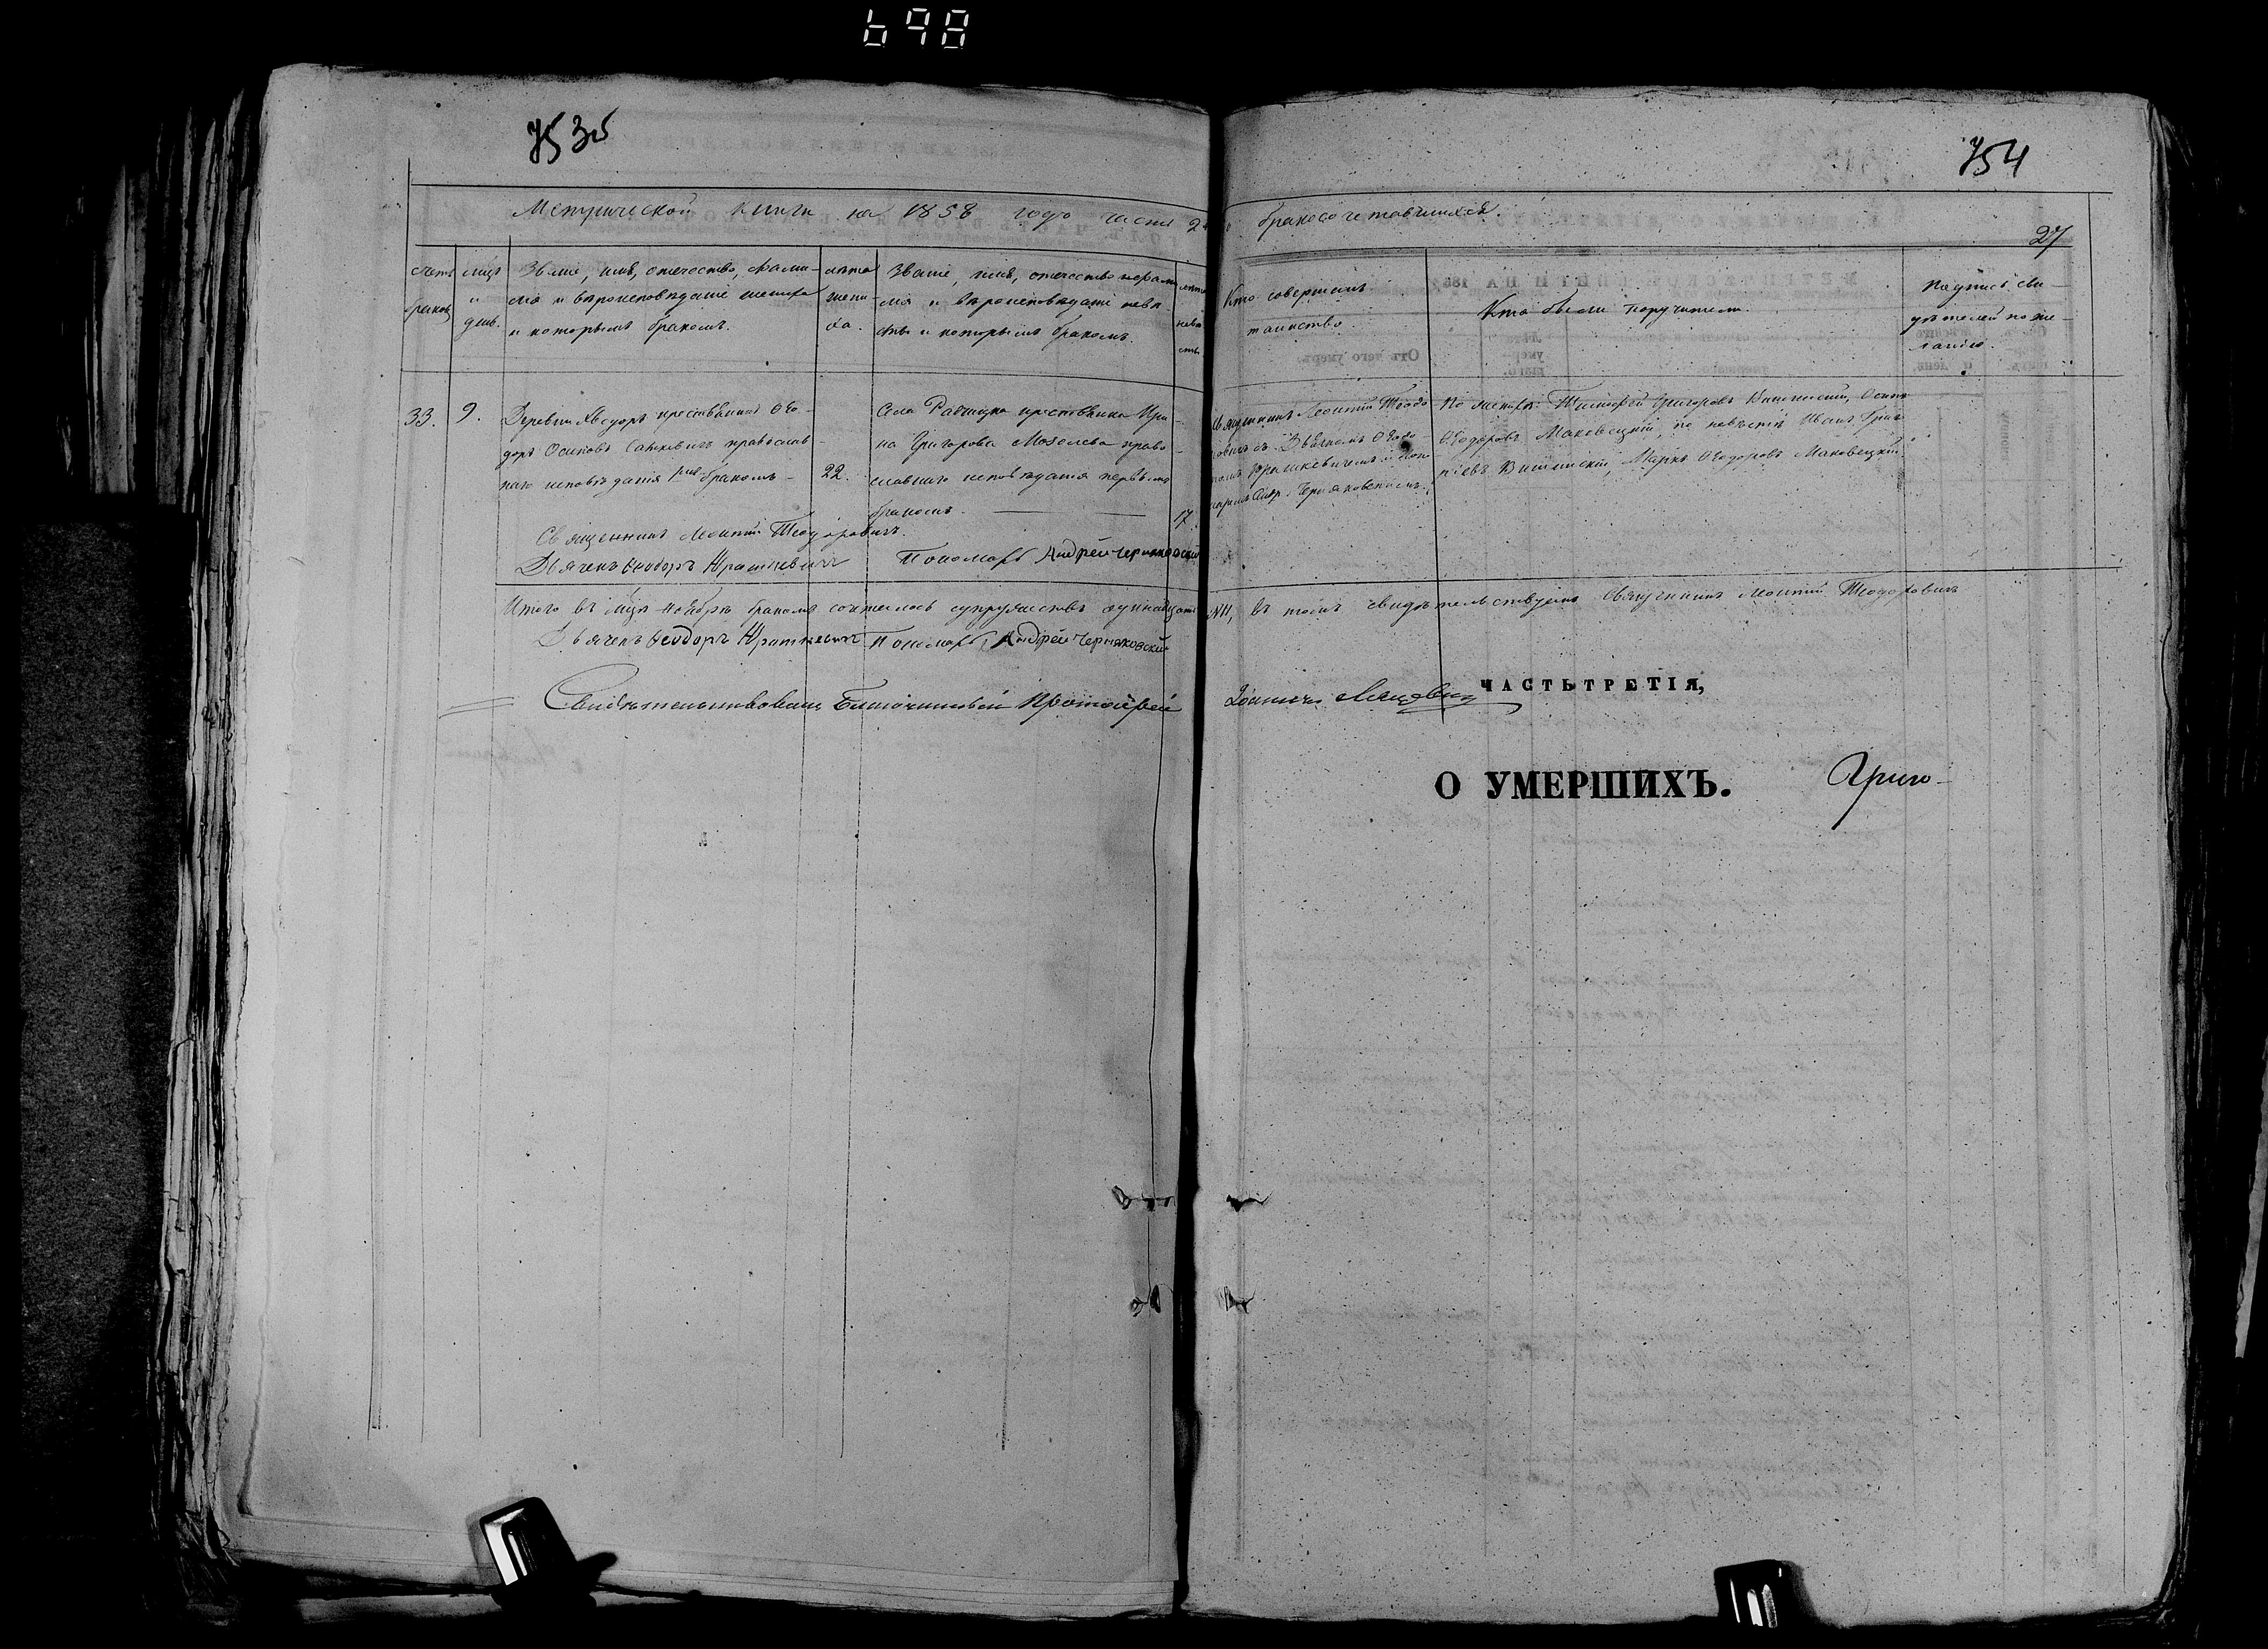 698
753об
754
Метрической книги на 1858 годъ часть 2я о бракосочетавшихся.
27
Счетъ браковъ
Мцъ и день.
Званіе, имя, отечество, фами-
лія и вѣроисповѣданіе жениха
и которымъ бракомъ.
лѣта
жени-
ха.
Званіе, имя, отечество, фами
лія и вѣроисповѣданіе невѣ-
сты и которымъ бракомъ.
лѣта
невѣ
сты
Кто совершалъ
таинство.
Кто были поручители.
Подпись сви-
дѣтелей по же-
ланію.
33.
9.
Деревни крестьянинъ Ѳео-
доръ Осиповъ православ-
наго исповѣданія бракомъ
22.
Села крестьянка Ири-
на Григорова право-
славнаго исповѣданія первымъ
бракомъ.
17.
Священникъ Леонтій Теодо
ровичъ съ Дьячкомъ Ѳеодо-
ромъ Юрашкевичемъ и поно
маремъ Андр. Черняковскимъ.
По женихѣ: Тимофей Григоровъ Вишинскій, Осипъ
Ѳеодоровъ Маковецкій, по невѣстѣ Иванъ
Вишинскій, Марко Ѳеодоровъ Маковецкій.
Священникъ Леонтій Теодоровичъ.
Дьячекъ Ѳеодоръ Юрашкевичъ Пономарь Андрей Черняковскій
Итого въ мцѣ ноябрѣ бракомъ сочеталось супружествъ одинадцать №11, въ томъ свидѣтельствуемъ Священникъ Леонтій Теодоровичъ
Дьячекъ Ѳеодоръ Юрашкевичъ Пономарь Андрей Черняковскій
Свидѣтельствовалъ Благочинный Протоіерей Іоаннъ
ЧАСТЬ ТРЕТІЯ,
О УМЕРШИХЪ.
Григо-